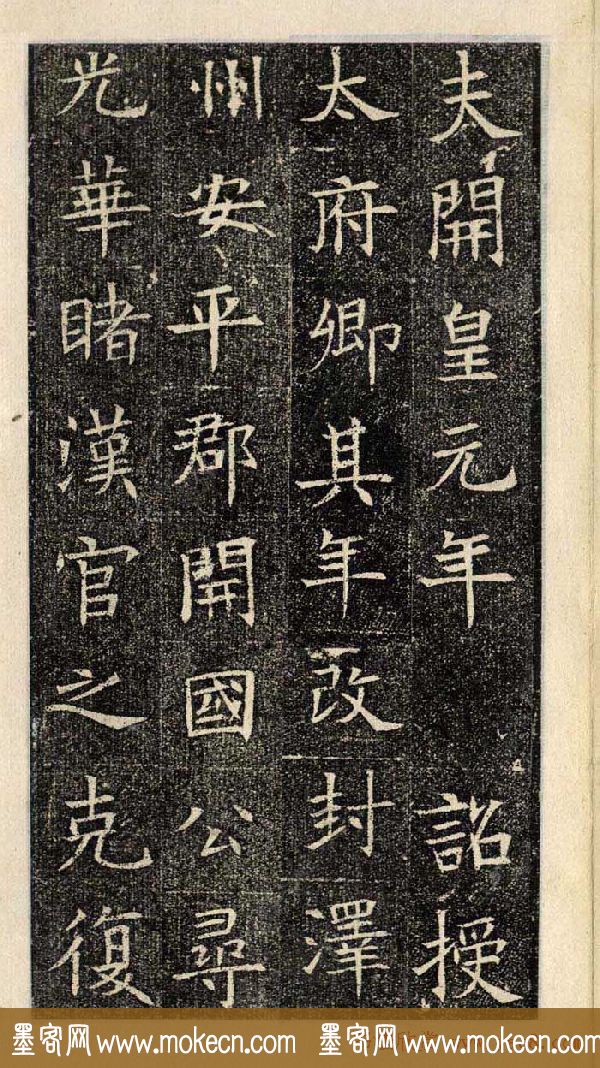 夫開皇元年 詔授
太府卿其年改封澤
州安平郡開國公尋
光華睹漢官之克復
墨客网 www.mokecn.com 墨客网 www.mokecn.com